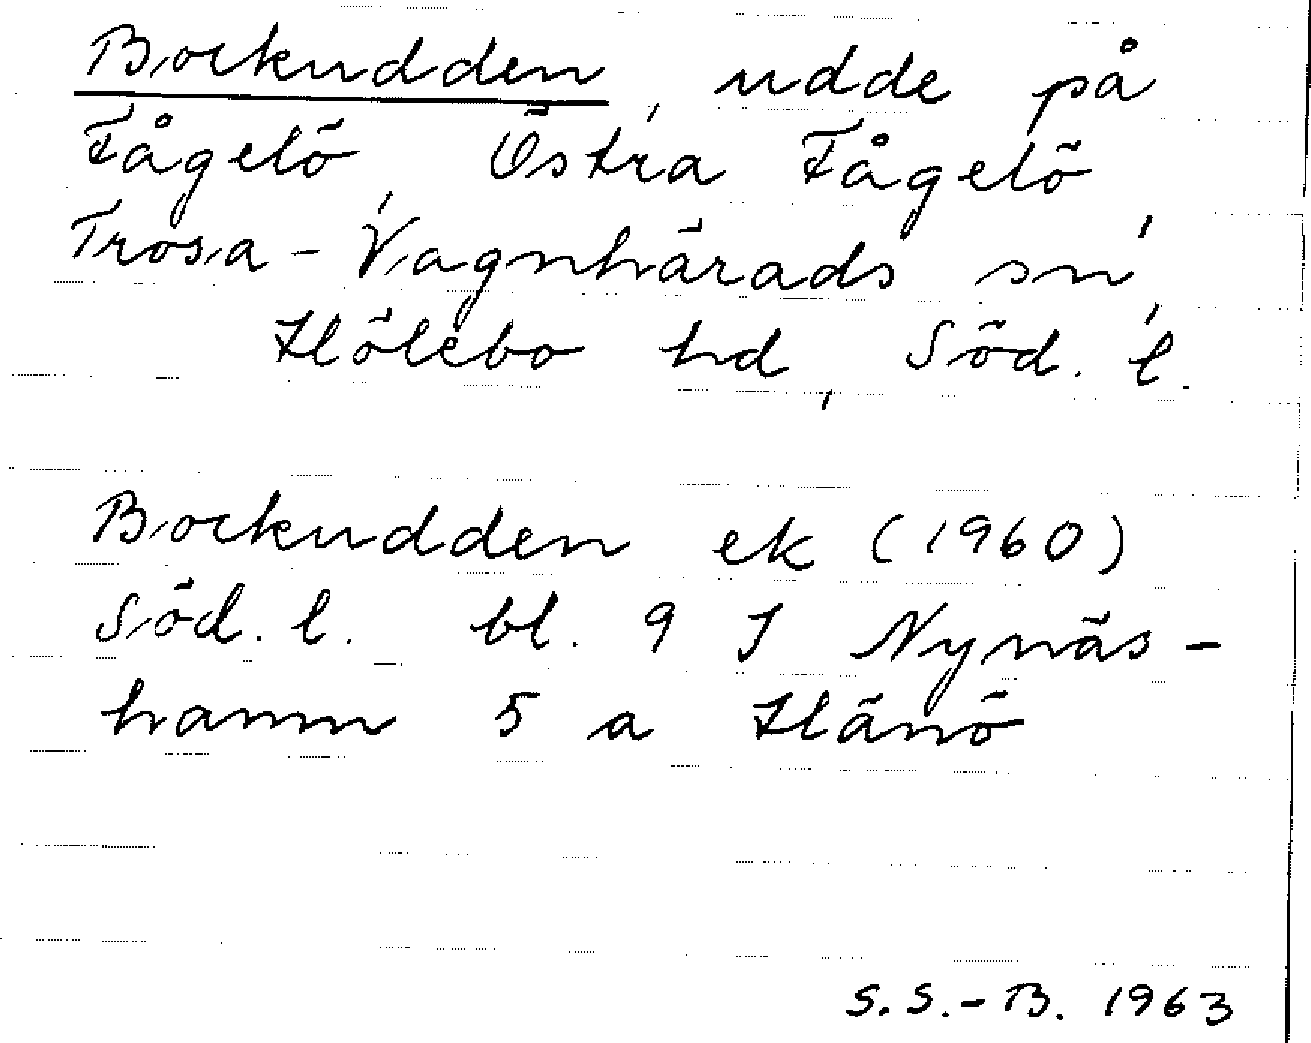 Bockudden, udde på
Fågelö, Östra Fågelö
Trosa-Vagnhärads sn,
Hölebo hd, Söd. l.
Bockudden ek (1960)
Söd. l. bl. 9 I Nynäs-
hamn 5 a Hånö
S.S.-B. 1963